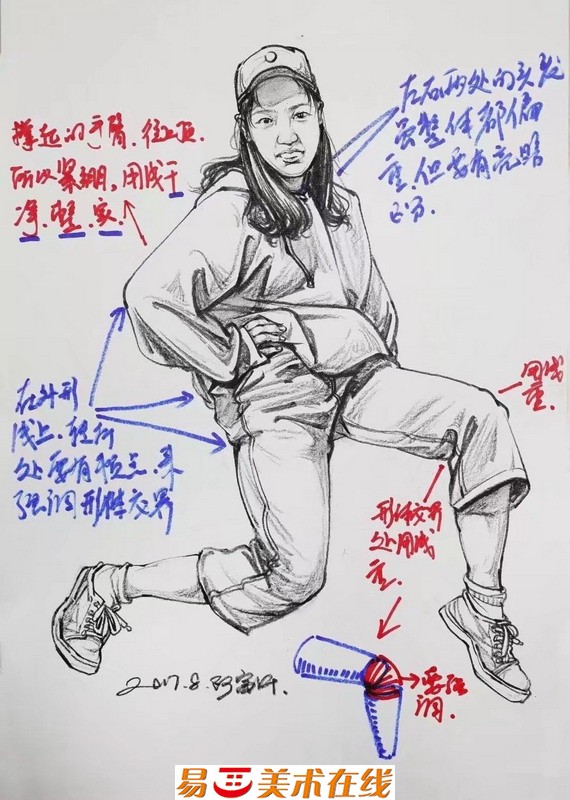 撑起的手臂.往上顶.
所以紧绷,用线干
净.硬.
左右两处的头发
虽整体都偏
重.但要有亮暗
区分.
在外形
线上.转折
处要有顿点.来
强调形体交界
用线
重.
形体交界
处用线
重.
要强
调.
2017.8.
易美术在线